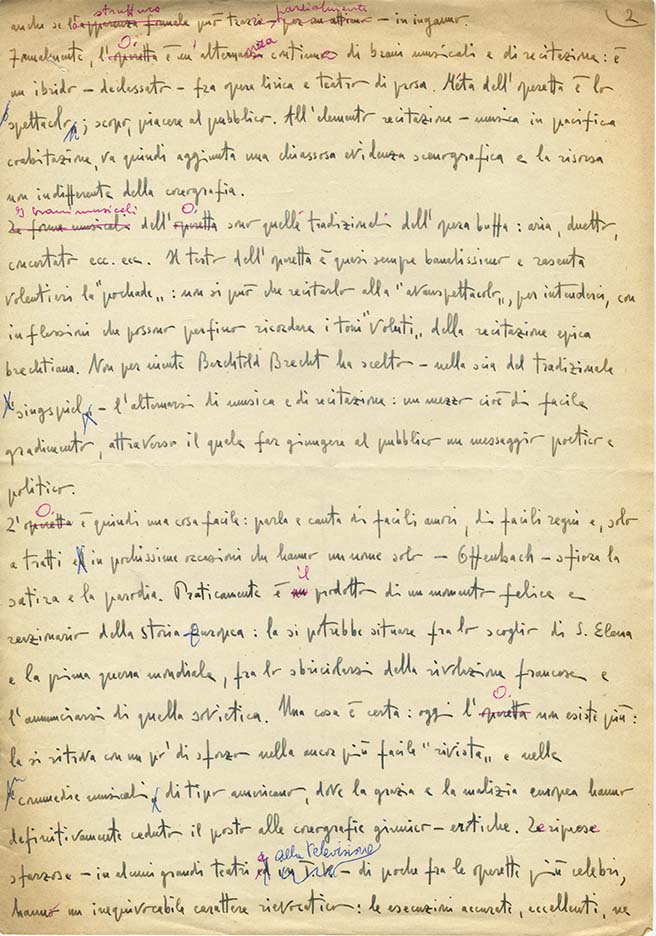 2
struttura parzialmente
anche se la apparenza formale può trarre per un attimo – in inganno.
Formalmente, l'O. operetta è un'alternanza continua di brani musicali e di recitazione: è
un ibrido – declassato – fra opera lirica e teatro di prosa. Méta dell'operetta è lo
spettacolo; scopo, piacere al pubblico. All'elemento recitazione – musica in pacifica
coabitazione, va quindi aggiunta una chiassosa evidenza scenografica e la risorsa
non indifferente della coreografia.
I brani musicali O.
Le forme musicali dell'operetta sono quelli tradizionali dell'opera buffa: aria, duetto,
concertato ecc. ecc. Il testo dell'operetta è quasi sempre banalissimo e rasenta
volentieri la "pochade": non si può che recitarlo alla "avanspettacolo", per intenderci, con
inflessioni che possono perfino ricordare i toni "voluti" della recitazione epica
brechtiana. Non per niente Berchtold Brecht ha scelto – nella scia del tradizionale
singspiel – l'alternarsi di musica e di recitazione: un mezzo cioè di facile
gradimento, attraverso il quale far giungere al pubblico un messaggio poetico e
politico.
O.
L'operetta è quindi una cosa facile: parla e canta di facili amori, di facili regni e, solo
a tratti e in pochissime occasioni che hanno un nome solo – Offenbach – sfiora la
satira e la parodia. Praticamente è un il prodotto di un momento felice e
reazionario della storia Europea: la si potrebbe situare fra lo scoglio di S. Elena
e la prima guerra mondiale, fra lo sbriciolarsi della rivoluzione francese e
O.
l'annunciarsi di quella sovietica. Una cosa è certa: oggi l'operetta non esiste più:
la si ritrova con un po' di sforzo nella ancor più facile "rivista" e nella
commedie musicali di tipo americano, dove la grazia e la malizia europea hanno
definitivamente ceduto il posto alle coreografie ginnico – erotiche. Le riprese
alla televisione
sforzose – in alcuni grandi teatri ed in – di poche fra le operette più celebri,
hanno un inequivocabile carattere rievocativo: le esecuzioni accurate, eccellenti, ne